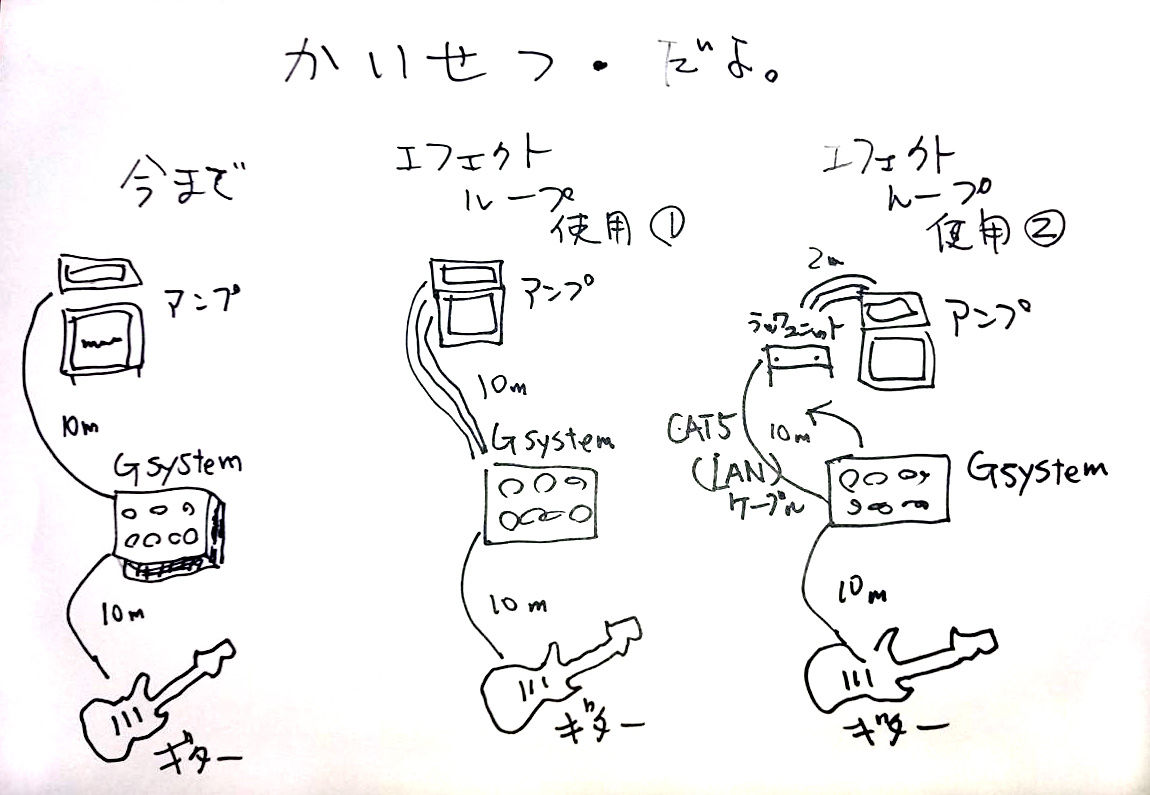 かいせつ・だよ。
今まで
アンプ
10m
Gsystem
10m
ギター
エフェクト
ループ
使用①
アンプ
10m
Gsystem
10m
ギター
エフェクト
ループ
使用②
2m
ラックユニット
アンプ
CAT5
(LAN)
ケーブル
10m
Gsystem
10m
ギター